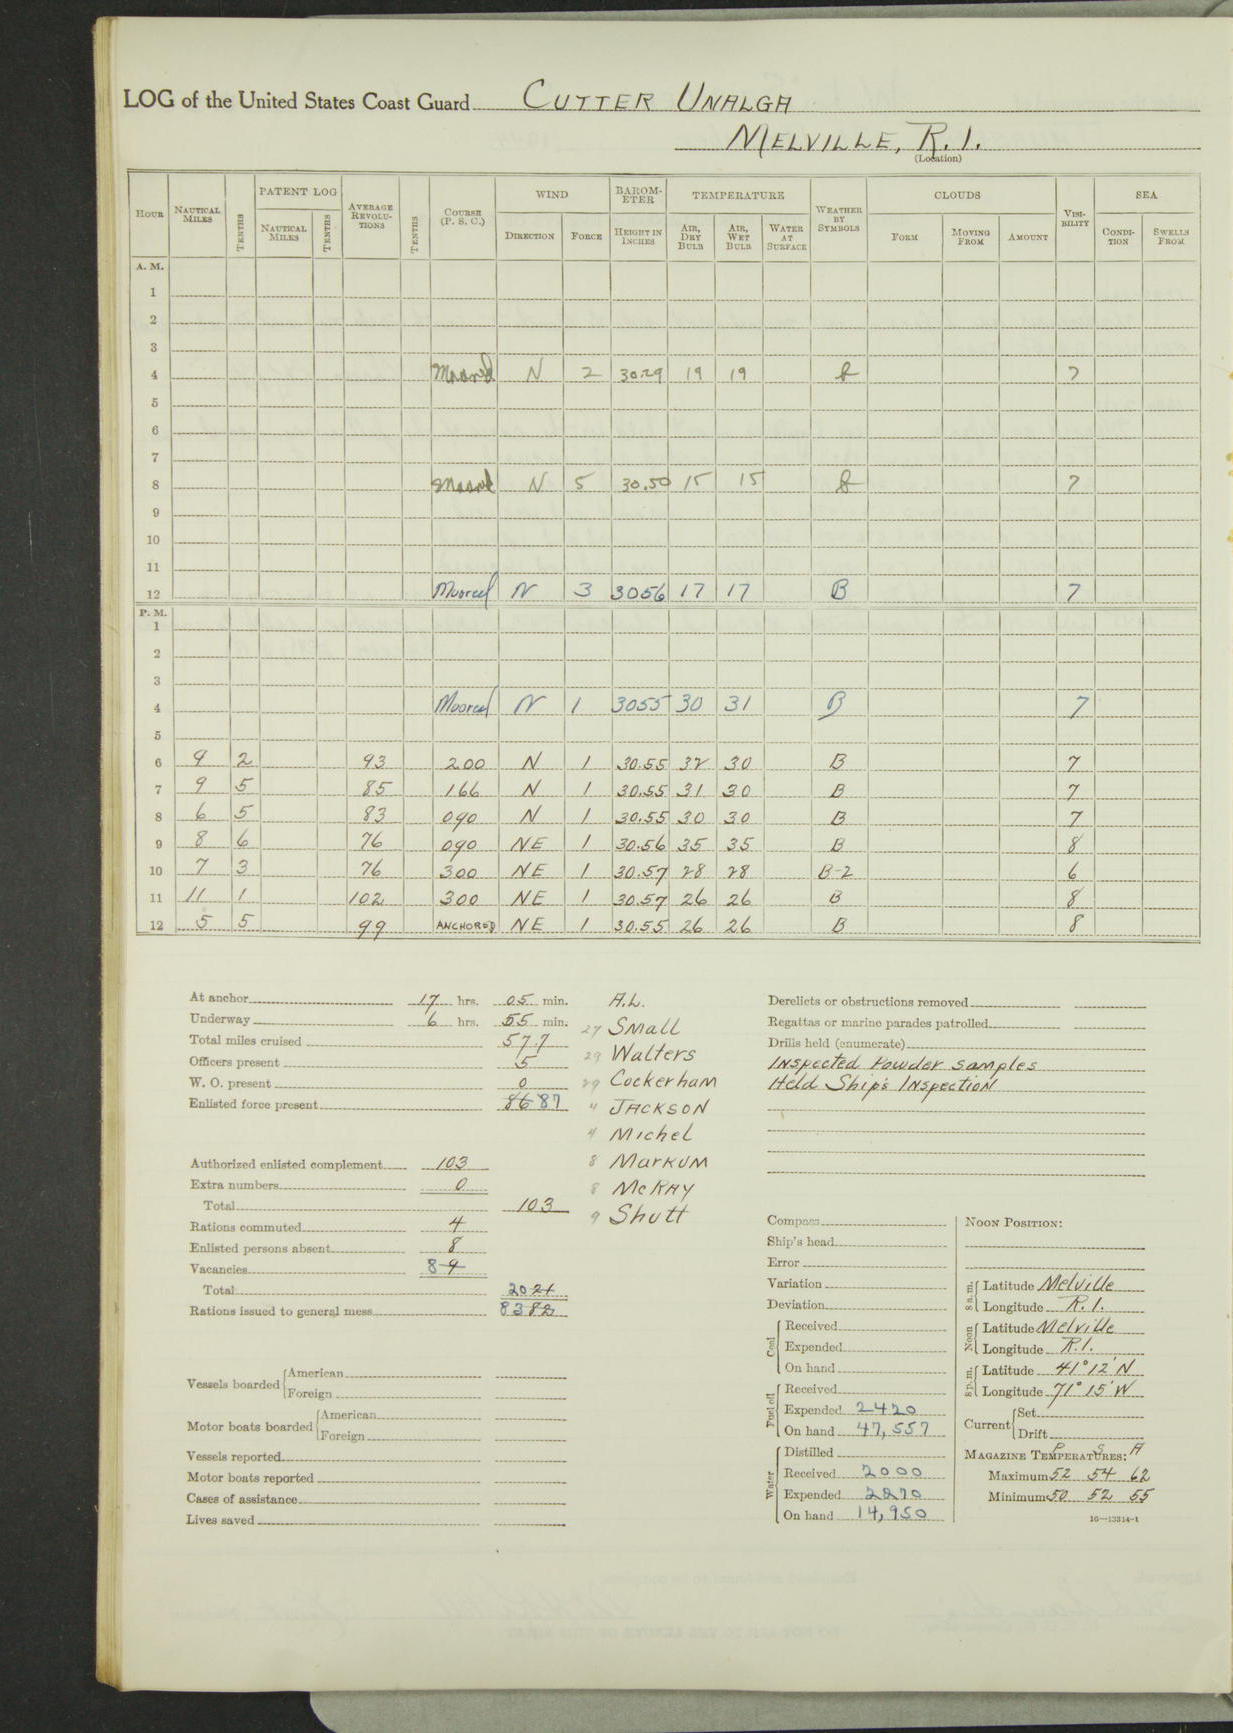 LOG of the United States Coast Guard CUTTER UNALGA
MELVILLE, R.I.
(Location)
HOUR NAUTICAL MILES TENTHS PATENT LOG NAUTICAL MILES TENTHS AVERAGE REVOLUTIONS TENTHS COURSE (P. S. C.) WIND DIRECTION FORCE BAROMETER HEIGHT IN INCHES TEMPERATURE AIR, DRY BULB AIR, WET BULB WATER AT SURFACE WEATHER BY SYMBOLS CLOUDS FORM MOVING FROM AMOUNT VISIBILITY SEA CONDITION SWELLS FROM
A. M.
1
2
3
4 Moored N 2 30.29 19 19 7
5
6
7
8 Moored N 5 30.50 15 15 7
9
10
11
12 Moored N 3 3056 17 17 B 7
P. M.
1
2
3
4 Moored N 1 3055 30 31 B 7
5
6 9 2 93 200 N 1 30.55 32 30 B 7
7 9 5 85 166 N 1 30.55 31 30 B 7
8 6 5 83 090 N 1 30.55 30 30 B 7
9 8 6 76 090 NE 1 30.56 35 35 B 8
10 7 3 76 300 NE 1 30.57 28 28 B-2 6
11 11 1 102 300 NE 1 30.57 26 26 B 8
12 5 5 99 ANCHORED NE 1 30.55 26 26 B 8
At anchor 17 hrs. 05 min.
Underway 6 hrs. 55 min.
Total miles cruised 57.7
Officers present 5
W. O. present 0
Enlisted force present 86 87
Authorized enlisted complement 103
Extra numbers 0
Total 103
Rations commuted 4
Enlisted persons absent 8
Vacancies 8 9
Total 20 21
Rations issued to general mess 83 82
Vessels boarded American
Foreign
Motor boats boarded American
Foreign
Vessels reported
Motor boats reported
Cases of assistance
Lives saved
A.L.
27 Small
29 Walters
29 Cockerham
" JACKSON
4 Michel
8 Markum
8 McKAY
9 Shutt
Derelicts or obstructions removed
Regattas or marine parades patrolled
Drills held (enumerate)
Inspected Powder samples
Held Ship's Inspection
Compass
Ship's head
Error
Variation
Deviation
Coal Received
Expended
On hand
Fuel oil Received
Expended 2420
On hand 47,557
Water Distilled
Received 2000
Expended 2870
On hand 14,950
NOON POSITION:
8 a.m. Latitude Melville
Longitude R.I.
Noon Latitude Melville
Longitude R.I.
8 p.m. Latitude 41° 12' N
Longitude 71° 15' W
Current Set
Drift
P S A
MAGAZINE TEMPERATURES:
Maximum 52 54 62
Minimum 50 52 55
16—13314-1